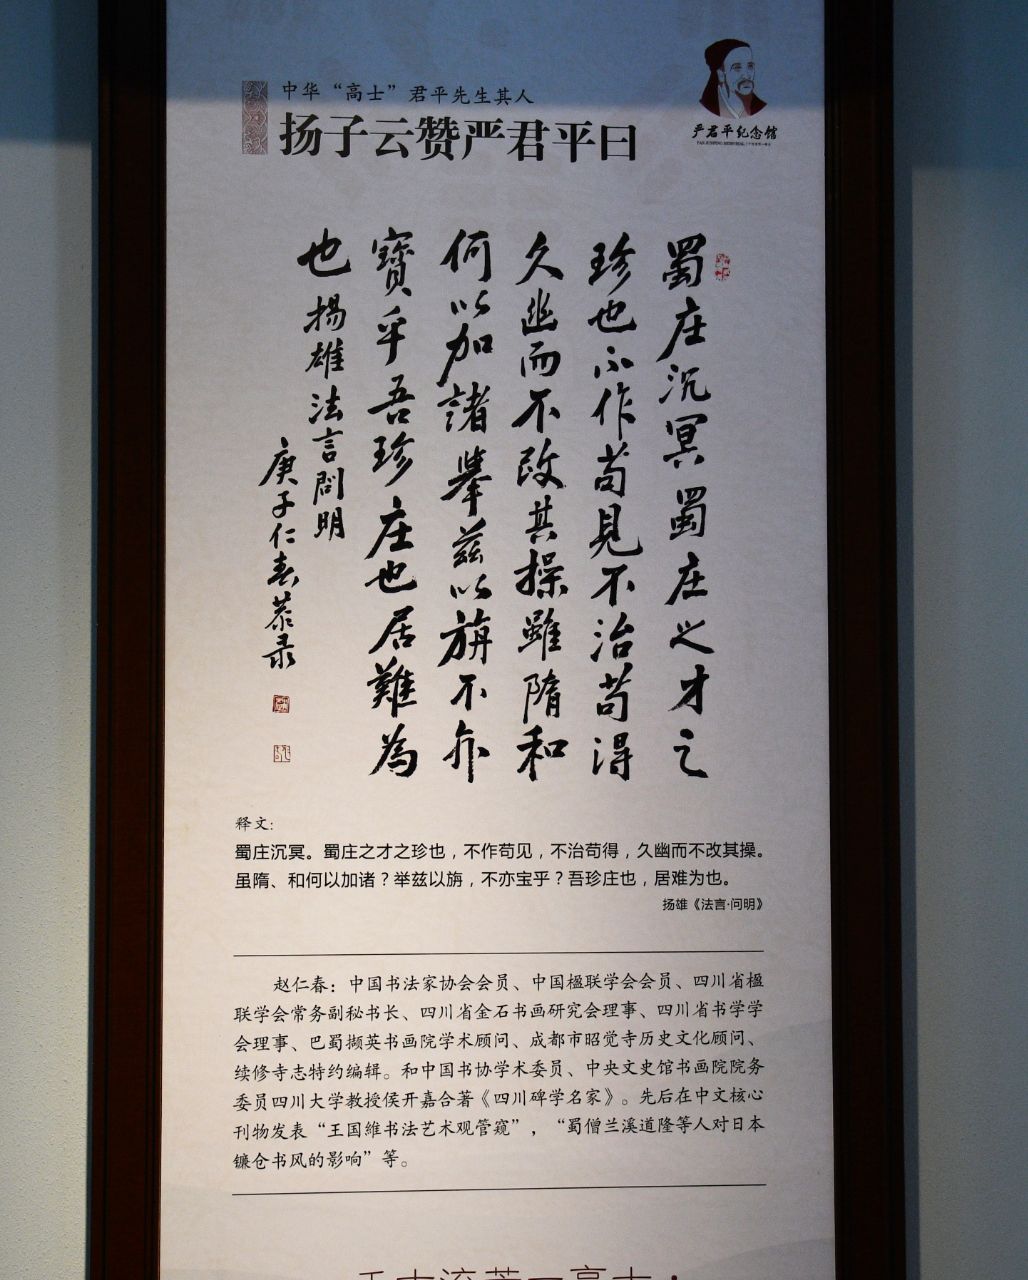 中华“高士”君平先生其人
扬子云赞严君平曰
严君平纪念馆
蜀庄沉冥蜀庄之才之
珍也不作苟見不治苟得
久幽而不改其操雖隋和
何以加諸舉兹以旃不亦
寶乎吾珍庄也居難為
也揚雄法言問明
庚子仁春恭录
释文:
蜀庄沉冥。蜀庄之才之珍也，不作苟见，不治苟得，久幽而不改其操。
虽隋、和何以加诸？举兹以旃，不亦宝乎？吾珍庄也，居难为也。
扬雄《法言·问明》
赵仁春：中国书法家协会会员、中国楹联学会会员、四川省楹
联学会常务副秘书长、四川省金石书画研究会理事、四川省书学学
会理事、巴蜀撷英书画院学术顾问、成都市昭觉寺历史文化顾问、
续修寺志特约编辑。和中国书协学术委员、中央文史馆书画院院务
委员四川大学教授侯开嘉合著《四川碑学名家》。先后在中文核心
刊物发表“王国維书法艺术观管窥”，“蜀僧兰溪道隆等人对日本
镰仓书风的影响”等。